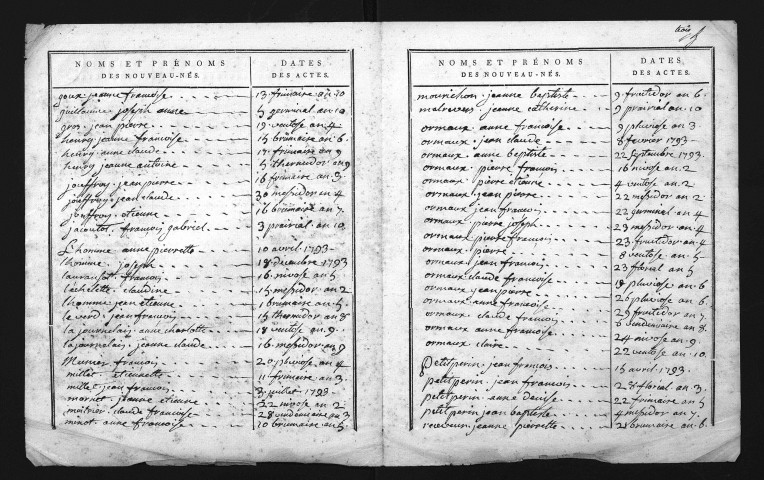 NOMS ET PRÉNOMS DES NOUVEAU-NÉS. DATES DES ACTES.
goux jeanne francoise 13 frimaire an 10
guillaume joseph anne 5 germinal an 10
gros jean pierre 19 ventose an 4
henry jeanne francoise 15 brumaire an 6
henry anne claude 17 frimaire an 9
henry jeanne antoine 15 thermidor an 9
jouffroy jean pierre 16 frimaire an 3
jouffroy jean claude 30 messidor an 4
jouffroy etienne 16 brumaire an 7
jacoutot francois gabriel 3 prairial an 10
L'homme anne pierrette 10 avril 1793
l'homme joseph 18 decembre 1793
francois 16 nivose an 5
lachelette claudine 15 messidor an 2
l'homme jean etienne 1 brumaire an 5
le verd jean francois 15 thermidor an 8
la journelais anne charlotte 18 ventose an 9
la journelais jeanne claude 16 messidor an 9
Munier francois 20 pluviose an 4
millet etiennette 11 frimaire an 3
millet jean francois 3 juillet 1793
mornet jeanne etienne 22 nivose an 2
meunier claude francoise 28 vendemiaire an 3
minot anne francoise 10 brumaire an 5
trois
NOMS ET PRÉNOMS DES NOUVEAU-NÉS. DATES DES ACTES.
jeanne baptiste 9 fructidor an 6
jeanne catherine 9 prairial an 10
ormaux anne francoise 9 pluviose an 3
ormaux jean claude 8 fevrier 1793
ormaux anne baptiste 22 septembre 1793
ormaux pierre francois 16 nivose an 2
ormaux pierre etienne 4 ventose an 2
ormaux jean pierre 22 messidor an 2
ormaux jean francois 22 germinal an 4
ormaux pierre joseph 29 messidor an 4
ormaux pierre francois 23 fructidor an 4
ormaux pierre 8 ventose an 5
ormaux jean francois 23 floreal an 5
ormaux claude francoise 18 pluviose an 6
ormaux jean pierre 26 pluviose an 6
ormaux anne francoise 29 fructidor an 7
ormaux claude francois 6 vendemiaire an 8
ormaux anne francoise 24 nivose an 9
ormaux claire 22 ventose an 10
Petitperin jean francois 15 avril 1793
petitperin jean francois 28 floreal an 3
petitperin anne denise 22 frimaire an 5
petitperin jean baptiste 4 messidor an 7
receveur jeanne pierrette 28 brumaire an 6